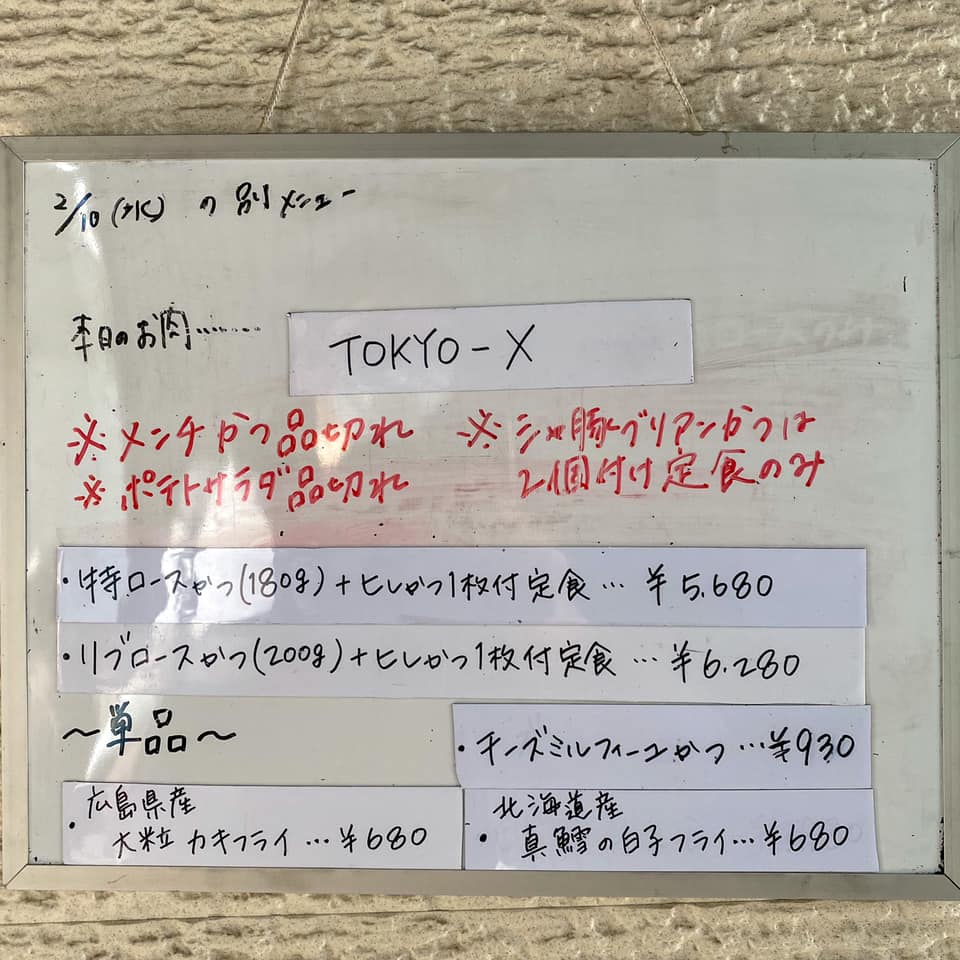 2/10(水) の別メニュー
本日のお肉………
TOKYO-X
※メンチかつ品切れ
※ポテトサラダ品切れ
※シャ豚ブリアンかつは
2個付け定食のみ
・特ロースかつ(180g)+ヒレかつ1枚付定食…¥5.680
・リブロースかつ(200g)+ヒレかつ1枚付定食…¥6.280
～単品～
・チーズミルフィーユかつ…¥930
広島県産
・大粒カキフライ…¥680
北海道産
・真鱈の白子フライ…¥680